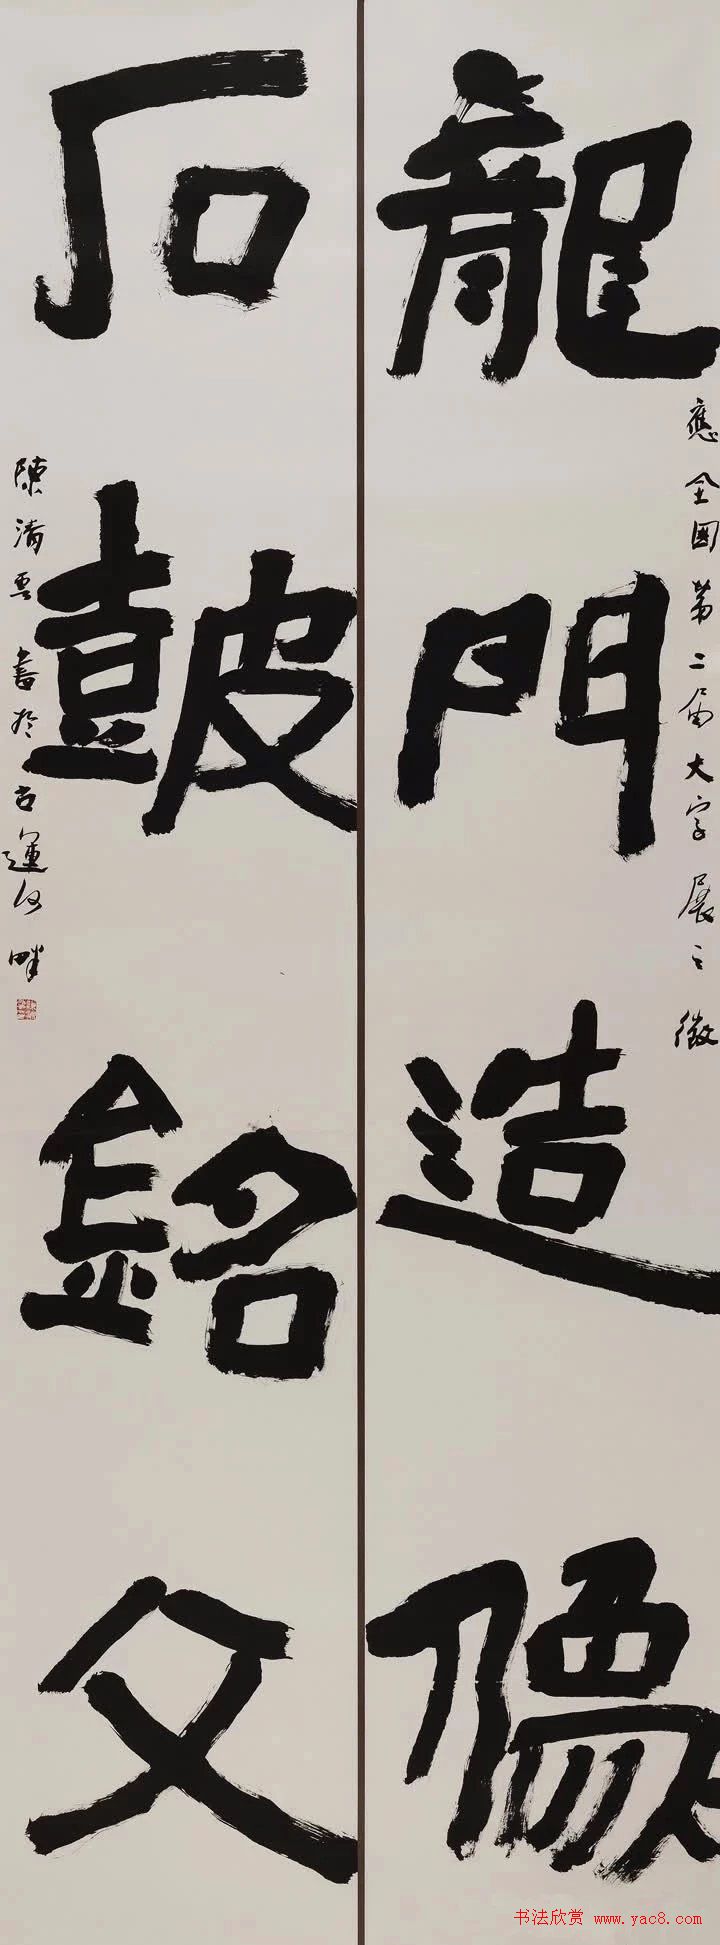 龍門造像
應全國第二届大字展之徵
石皷銘文
陳清雲書於古運河畔
书法欣赏 www.yac8.com